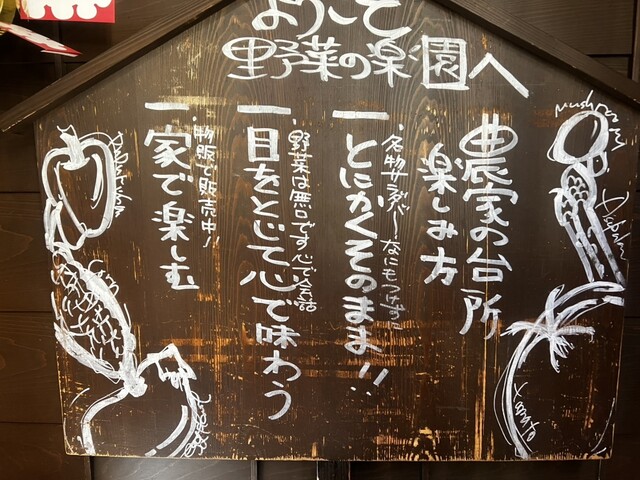 ようこそ
野菜の楽園へ
農家の台所
楽しみ方
一とにかくそのまま!!
・名物サラダバーなにもつけずに
一目をとじて心で味わう
野菜は無口です心で会話
一家で楽しむ
・物販で販売中!!
Mushroom
Tomato